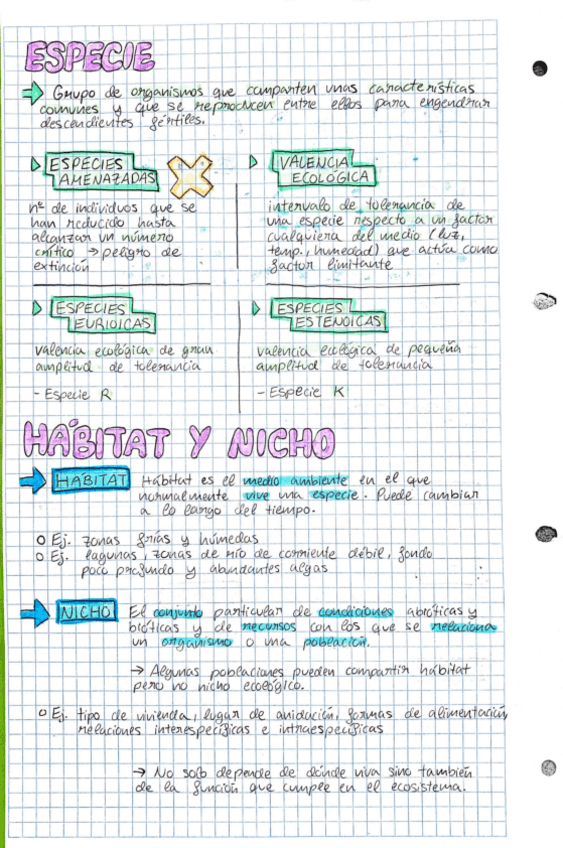 ESPECIE
→ Grupo de organismos que comparten unas características
comunes y que se reproducen entre ellos para engendrar
descendientes fértiles.
▷ ESPECIES
AMENAZADAS
nº de individuos que se
han reducido hasta
alcanzar un número
crítico → peligro de
extinción
▷ VALENCIA
ECOLÓGICA
intervalo de tolerancia de
una especie respecto a un factor
cualquiera del medio (luz,
temp., humedad) que actúa como
factor limitante
▷ ESPECIES
EURIOICAS
valencia ecológica de gran
amplitud de tolerancia
- Especie R
▷ ESPECIES
ESTENOICAS
valencia ecológica de pequeña
amplitud de tolerancia
- Especie K
HÁBITAT Y NICHO
→ HÁBITAT Hábitat es el medio ambiente en el que
normalmente vive una especie. Puede cambiar
a lo largo del tiempo.
o Ej. zonas frías y húmedas
o Ej. lagunas, zonas de río de corriente débil, fondo
poco profundo y abundantes algas
→ NICHO El conjunto particular de condiciones abióticas y
bióticas y de recursos con los que se relaciona
un organismo o una población.
→ Algunas poblaciones pueden compartir hábitat
pero no nicho ecológico.
o Ej. tipo de vivienda, lugar de anidación, formas de alimentación,
relaciones interespecíficas e intraespecíficas
→ No solo depende de dónde viva sino también
de la función que cumple en el ecosistema.